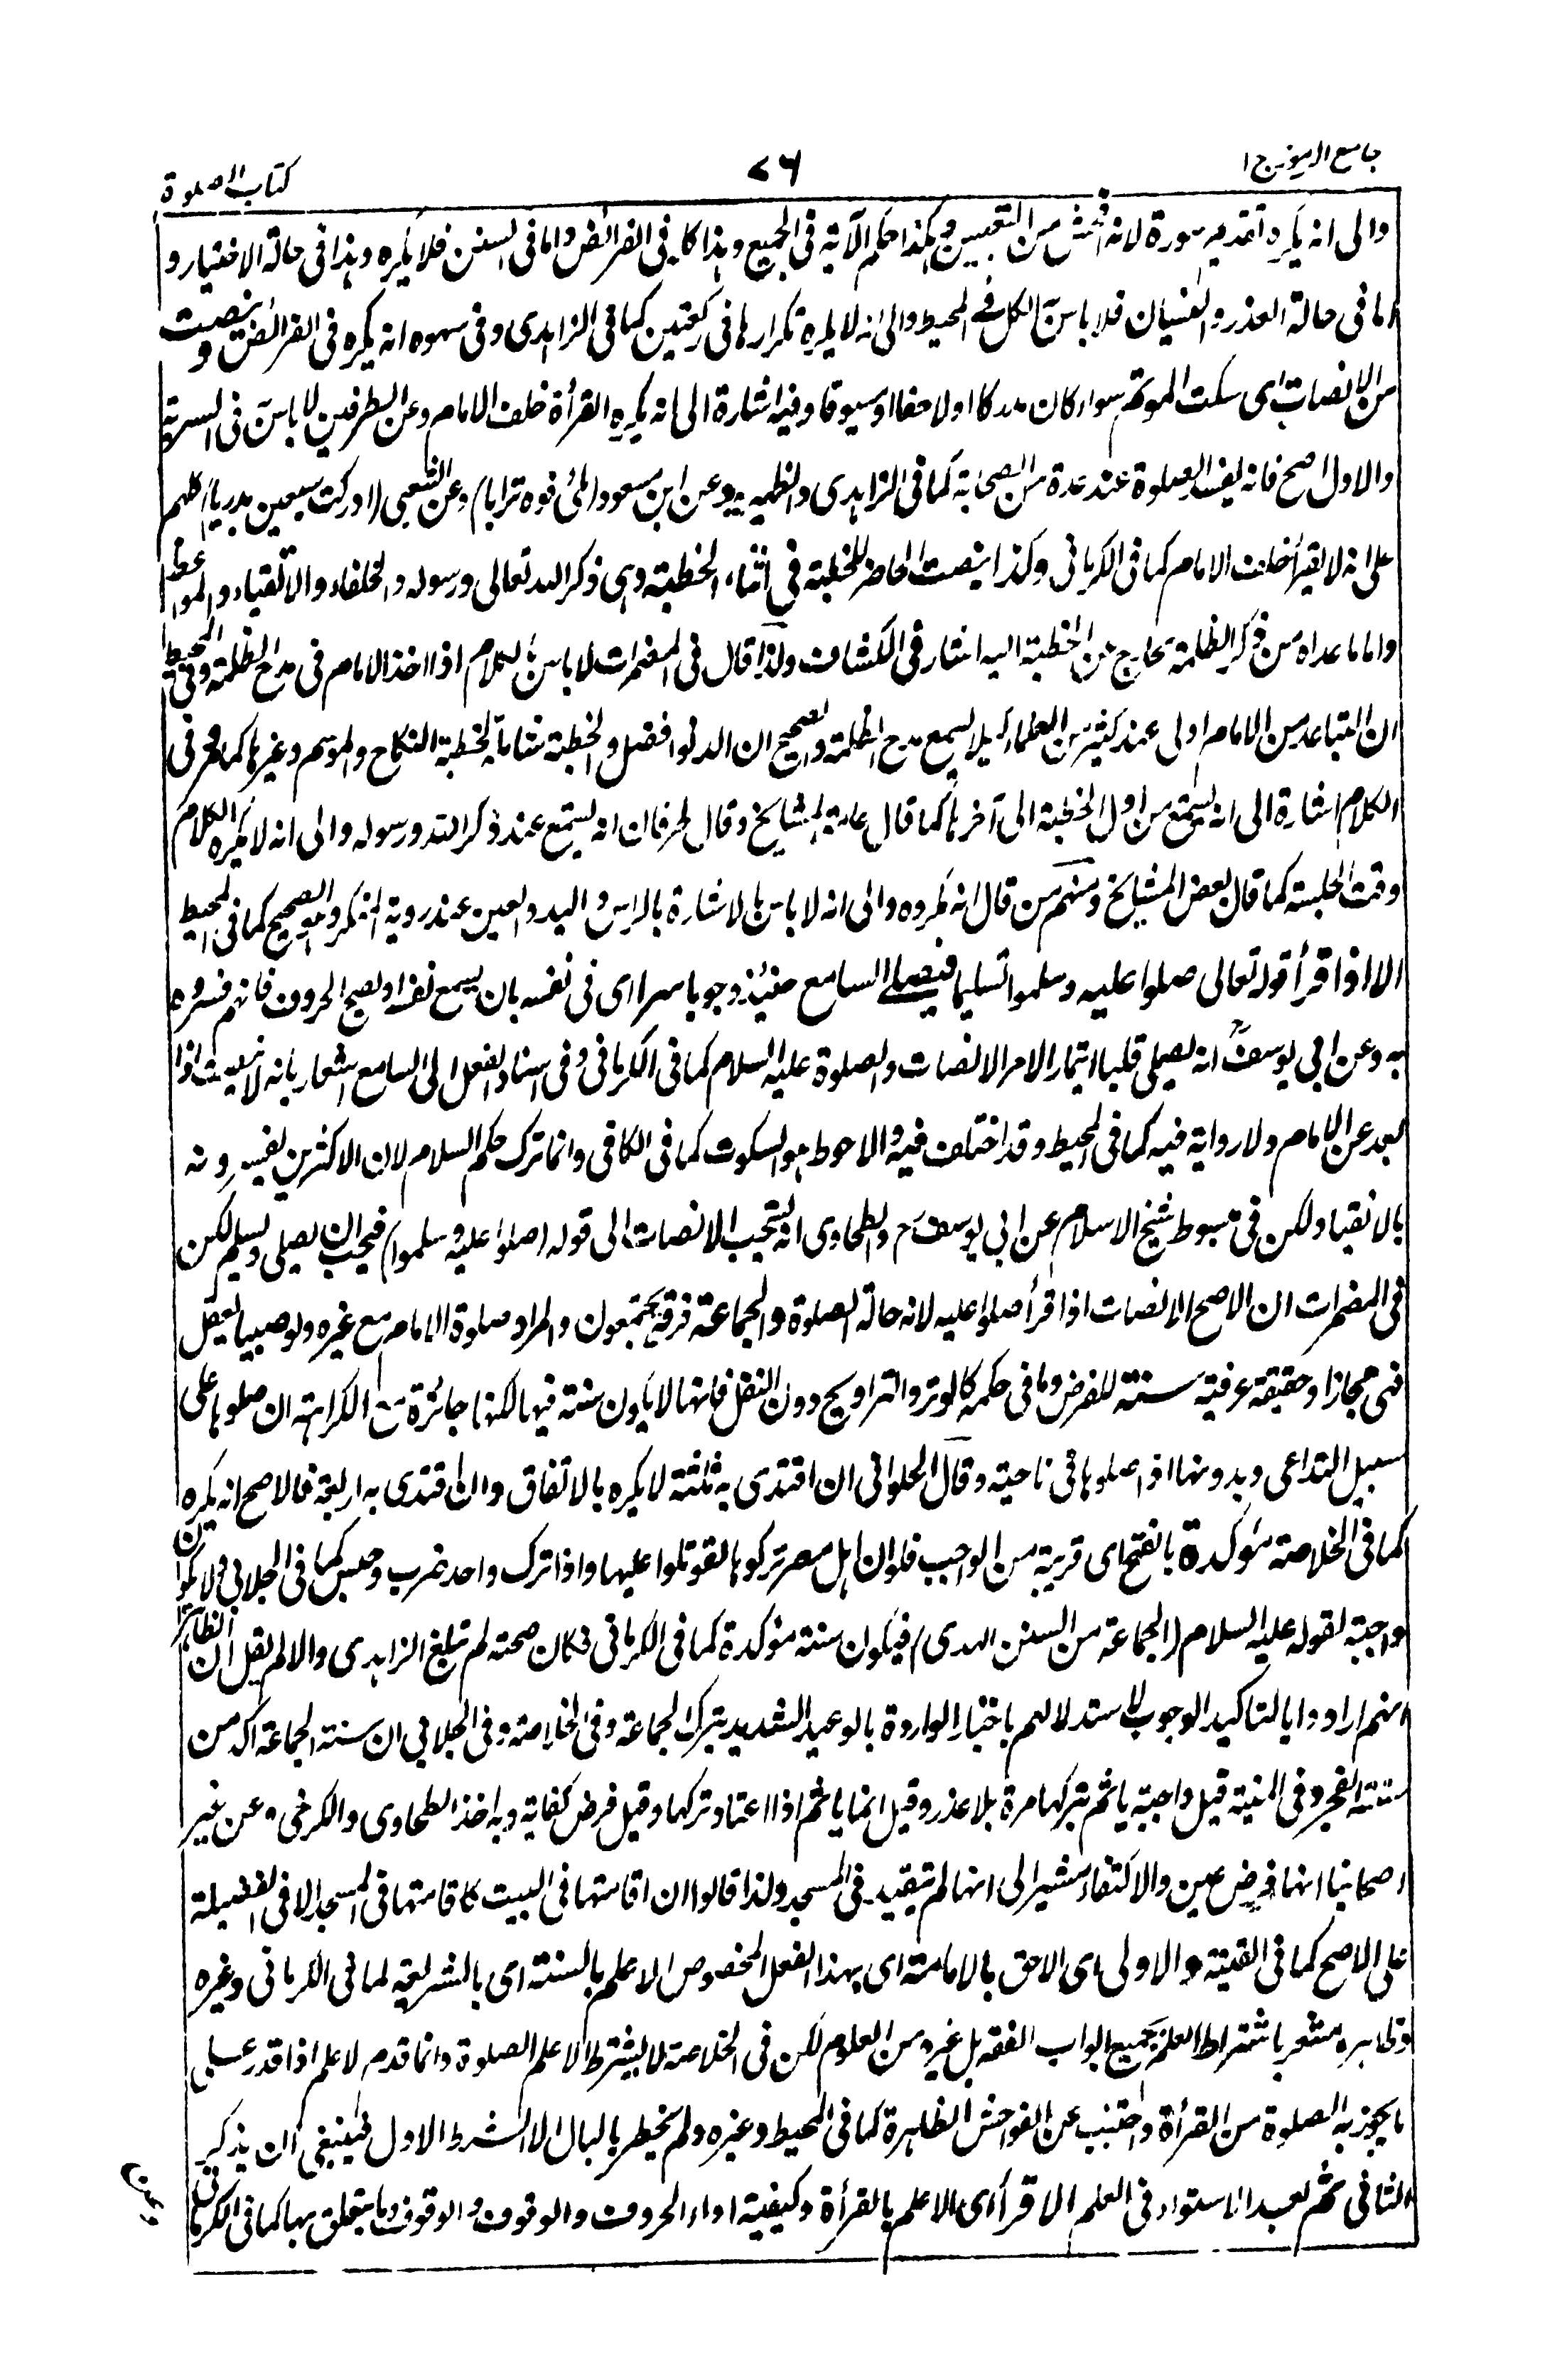 جامع الرموز ج ١
٧٦
كتاب الصلوة
والى انه يكره تقديم سورة لانه افحش من التعيين وهكذا حكم الآية فى الجميع وهذا كله فى الفرائض واما فى السنن فلا يكره وهذا فى حالة الاختيار و
اما فى حالة العذر والنسيان فلا باس الكل فى المحيط والى انه لا يكره تكرارها فى ركعتين كما فى الزاهدى وفى سهوه انه يكره فى الفرائض وينصت
من الانصات اى سكت الموتم سواء كان مدركا او لاحقا او مسبوقا وفيه اشارة الى انه يكره القرأة خلف الامام وعن الطرفين لا باس فى السرية
والاول اصح فانه يفسد الصلوة عند عدة من الصحابة كما فى الزاهدى والظهيرية وعن ابن مسعود (ملئ فوه ترابا) وعن الشعبى (ادركت سبعين بدريا) كلهم
على انه لا يقرأ خلف الامام كما فى الكرمانى وكذا ينصت الحاضر للخطبة فى اثناء الخطبة وهى ذكر الله تعالى ورسوله والخلفاء والاتقياء والمواعظ
واما ما عداه من ذكر الظلمة بخارج عن الخطبة اليه اشار فى الكشاف ولذا قال فى المضمرات لا باس بالكلام اذا اخذ الامام فى مدح الظلمة وفى المحيط
ان التباعد من الامام اولى عند كثير من العلماء كيلا يسمع مدح الظلمة والصحيح ان الدنو افضل والخطبة شاملة لخطبة النكاح والموسم وغيرها كما مر فى
الكلام اشارة الى انه يستمع من اول الخطبة الى آخرها كما قال عامة المشايخ وقال الحرفان انه يستمع عند ذكر الله ورسوله والى انه لا يكره الكلام
وقت الجلسة كما قال بعض المشايخ ومنهم من قال انه مكروه والى انه لا باس بالاشارة بالراس واليد والعين عند روية المنكر وهو الصحيح كما فى المحيط
الا اذا قرأ قوله تعالى صلوا عليه وسلموا تسليما فيصلى السامع حينئذ وجوبا سرا اى فى نفسه بان يسمع نفسه او يصحح الحروف فانهم فسروه
به وعن ابى يوسف انه يصلى قلبا ائتمارا لامر الانصات والصلوة عليه السلام كما فى الكرمانى وفى اسناد الفعل الى السامع اشعار بانه لا ينصت اذا
بعد عن الامام ولا رواية فيه كما فى المحيط وقد اختلف فيه والاحوط هو السكوت كما فى الكافى وانما ترك حكم السلام لان الاكثرين يفسرونه
بالانقياد ولكن فى مبسوط شيخ الاسلام عن ابى يوسف رح والطحاوى انه يستحب الانصات الى قوله (صلوا عليه وسلموا) فيجب ان يصلى ويسلم لكن
فى المضمرات ان الاصح الانصات اذا قرأ صلوا عليه لانه حالة الصلوة والجماعة فرقة يجتمعون والمراد صلوة الامام مع غيره ولو صبيا يعقل
فهى مجازا وحقيقة عرفية سنة للفرض وما فى حكمه كالوتر والتراويح دون النفل فانها لا يكون سنة فيها لكنها جائزة مع الكراهة ان صلوها على
سبيل التداعى وبدونها اذا صلوها فى ناحية وقال الحلوانى ان اقتدى به ثلثة لا يكره بالاتفاق وان اقتدى به اربعة فالاصح انه يكره
كما فى الخلاصة مؤكدة بالفتح اى قريبة من الواجب فلو ان اهل مصر تركوها لقوتلوا عليها واذا ترك واحد ضرب وحبس كما فى الجلابى ولا تكون
واجبة لقوله عليه السلام (الجماعة من السنن الهدى) فيكون سنة مؤكدة كما فى الكرمانى فكان صحته لم تبلغ الزاهدى والا لم يقل ان الظاهر
انهم ارادوا بالتاكيد الوجوب لاستدلالهم باخبار الواردة بالوعيد الشديد بترك الجماعة وفى الخلاصة وفى الجلابى ان سنة الجماعة آكد من
سنة الفجر وفى المنية قيل واجبة ياثم بتركها مرة بلا عذر وقيل انما ياثم اذا اعتاد تركها وقيل فرض كفاية وبه اخذ الطحاوى والكرخى وعن غير
اصحابنا انها فرض عين والاكتفاء مشير الى انها لم تتقيد فى المسجد ولذا قالوا ان اقامتها فى البيت كاقامتها فى المسجد الا فى الفضيلة
على الاصح كما فى القنية والاولى اى الاحق بالامامة اى بهذا الفعل المخصوص الاعلم بالسنة اى بالشريعة لما فى الكرمانى وغيره
وظاهره مشعر باشتراط العلم بجميع ابواب الفقه بل غيره من العلوم لكن فى الخلاصة لا يشترط الا علم الصلوة وانما قدم الاعلم اذا قدر على
ما يجوز به الصلوة من القرأة واجتنب عن الفواحش الظاهرة كما فى المحيط وغيره ولم يخطر بالبال الا الشرط الاول فينبغى ان يذكر
الثانى ثم بعد الاستواء فى العلم الاقرأ اى الاعلم بالقرأة وكيفية اداء الحروف والوقوف وما يتعلق بها كما فى الكرمانى
وعن